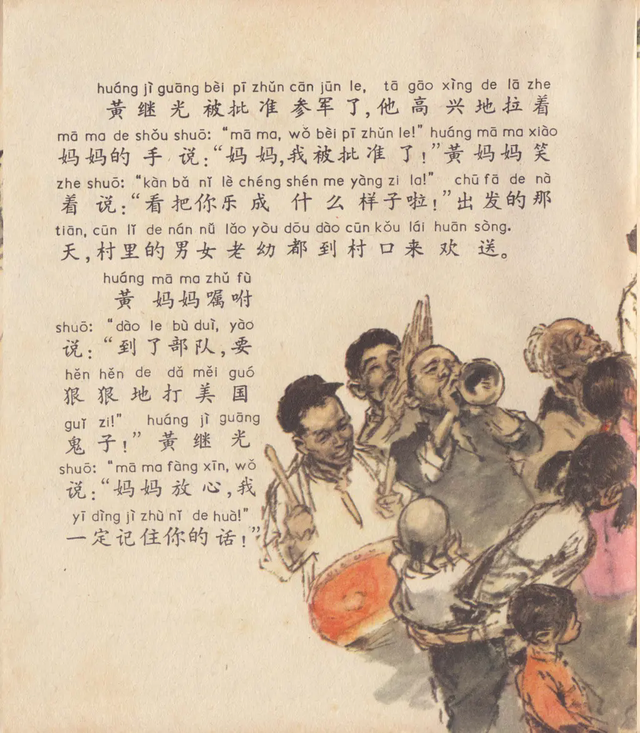 huáng jì guāng bèi pī zhǔn cān jūn le, tā gāo xìng de lā zhe
黄继光被批准参军了,他高兴地拉着
mā ma de shǒu shuō: “mā ma, wǒ bèi pī zhǔn le!” huáng mā ma xiào
妈妈的手说:“妈妈,我被批准了!”黄妈妈笑
zhe shuō: “kàn bǎ nǐ lè chéng shén me yàng zi la!” chū fā de nà
着说:“看把你乐成什么样子啦!”出发的那
tiān, cūn lǐ de nán nǚ lǎo yòu dōu dào cūn kǒu lái huān sòng.
天,村里的男女老幼都到村口来欢送。
huáng mā ma zhǔ fù
黄妈妈嘱咐
shuō: “dào le bù duì, yào
说:“到了部队,要
hěn hěn de dǎ měi guó
狠狠地打美国
guǐ zi!” huáng jì guāng
鬼子!”黄继光
shuō: “mā ma fàng xīn, wǒ
说:“妈妈放心,我
yī dìng jì zhù nǐ de huà!”
一定记住你的话!”